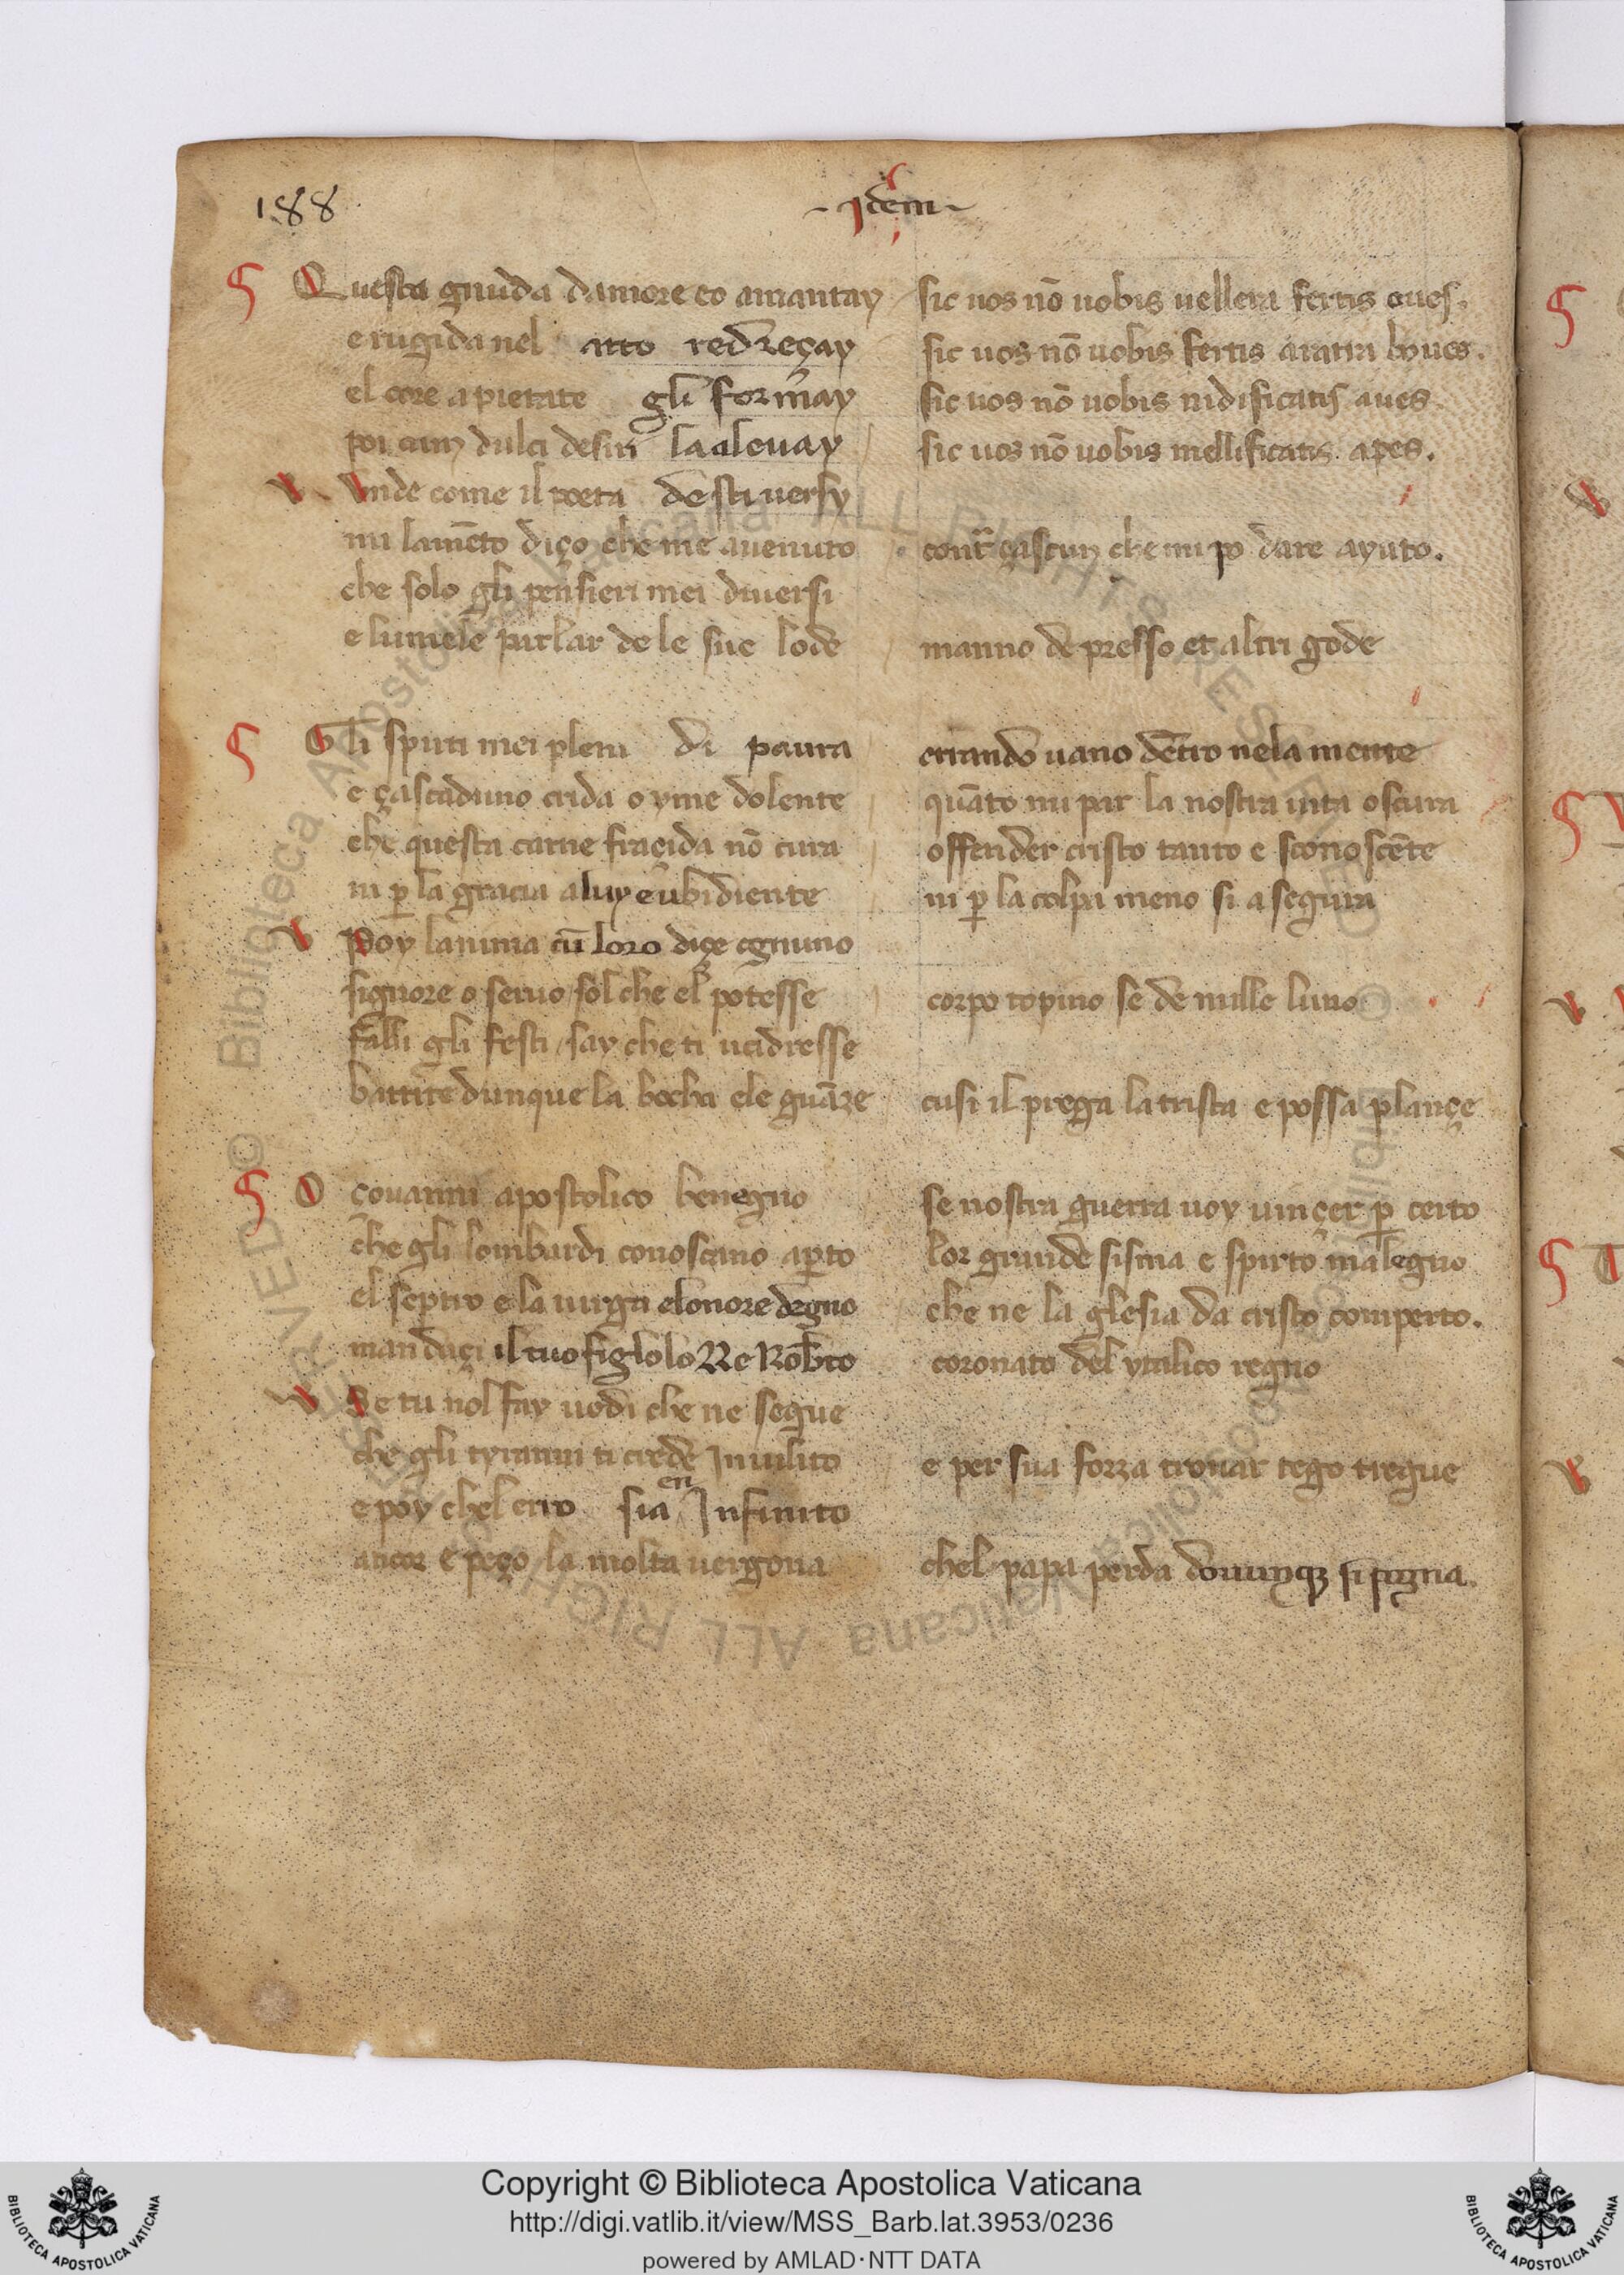 188
Idem
Questa gnuda damore eo amantay sic uos nō uobis uellera fertis oues.
e rugida nel atto redreçay sic uos nō uobis fertis aratra boues.
el core a pietate gli formay sic uos nō uobis nidificatis aues
poi cum dulci desiri la aleuay sic uos nō uobis mellificatis apes.
V Unde come il poeta de sti uersy
mi lamēto diço che me auenuto contr çascun che mi po dare ayuto.
che solo gli pensieri mei diuersi
e lumele parlar de le sue lode manno de presso et altri gode
Gli spirti mei pleni di paura criando uano dētro nela mente
e çascaduno crida o yme dolente quāto mi par la nostra uita oscura
che questa carne fraçida nō cura offender cristo tanto e sconoscēte
ni p la gracia a luy e ubidiente ni p la colpa meno si asegura
V Poy lanima cū loro diçe ognuno
signore o seruo sol che el potesse corpo topino se de mille luno
falli gli festi say che ti ucidresse
battite dunque la bocha ele guāze cusi il prega la trista e possa plançe
O çouanni apostolico benegno se nostra guerra uoy uinçer p certo
che gli lombardi conoscano apto lor grande sisma e spirto malegno
el septro e la uirga elonore degno che ne la glesia da cristo comperto.
mandaçi il tuo figlolo Re Robto coronato del ytalico regno
V Se tu nol fay uedi che ne seque
che gli tyranni ti crede Inuilito e per sua forza trouar tego tregue
e poy chel erro sia en Infinito
ancor e peço la molta uergona chel papa perda douunq si sugna.
Copyright © Biblioteca Apostolica Vaticana
http://digi.vatlib.it/view/MSS_Barb.lat.3953/0236
powered by AMLAD·NTT DATA